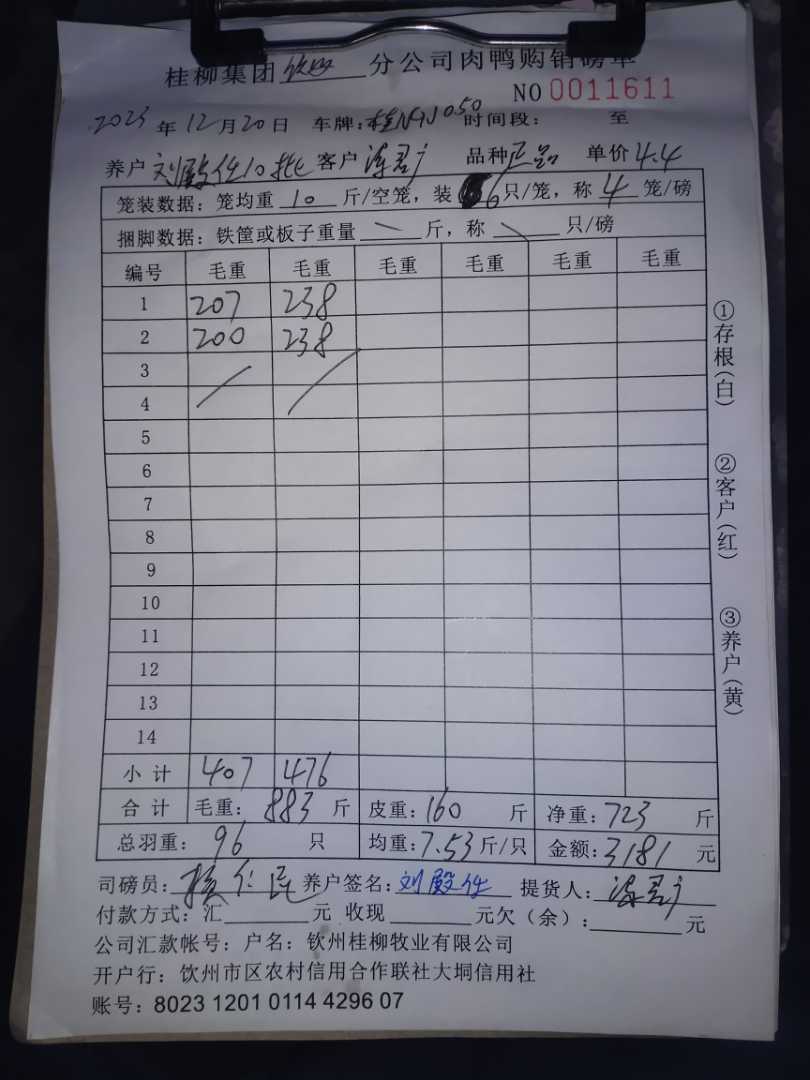 桂柳集团钦州分公司肉鸭购销磅单
NO 0011611
2023年12月20日 车牌:桂N 050 时间段: 至
养户 刘殿仕10批 客户 品种 正品 单价 4.4
笼装数据:笼均重 10 斤/空笼,装 6只/笼,称 4 笼/磅
捆脚数据:铁筐或板子重量 斤,称 只/磅
编号 毛重 毛重 毛重 毛重 毛重 毛重
1 207 238
2 200 238
3
4
5
6
7
8
9
10
11
12
13
14
小计 407 476
合计 毛重:883 斤 皮重:160 斤 净重:723 斤
总羽重:96 只 均重:7.53 斤/只 金额:3181 元
司磅员: 养户签名:刘殿仕 提货人:
付款方式:汇 元 收现 元欠(余): 元
公司汇款帐号:户名:钦州桂柳牧业有限公司
开户行:饮州市区农村信用合作联社大垌信用社
账号:8023 1201 0114 4296 07
①存根(白)
②客户(红)
③养户(黄)